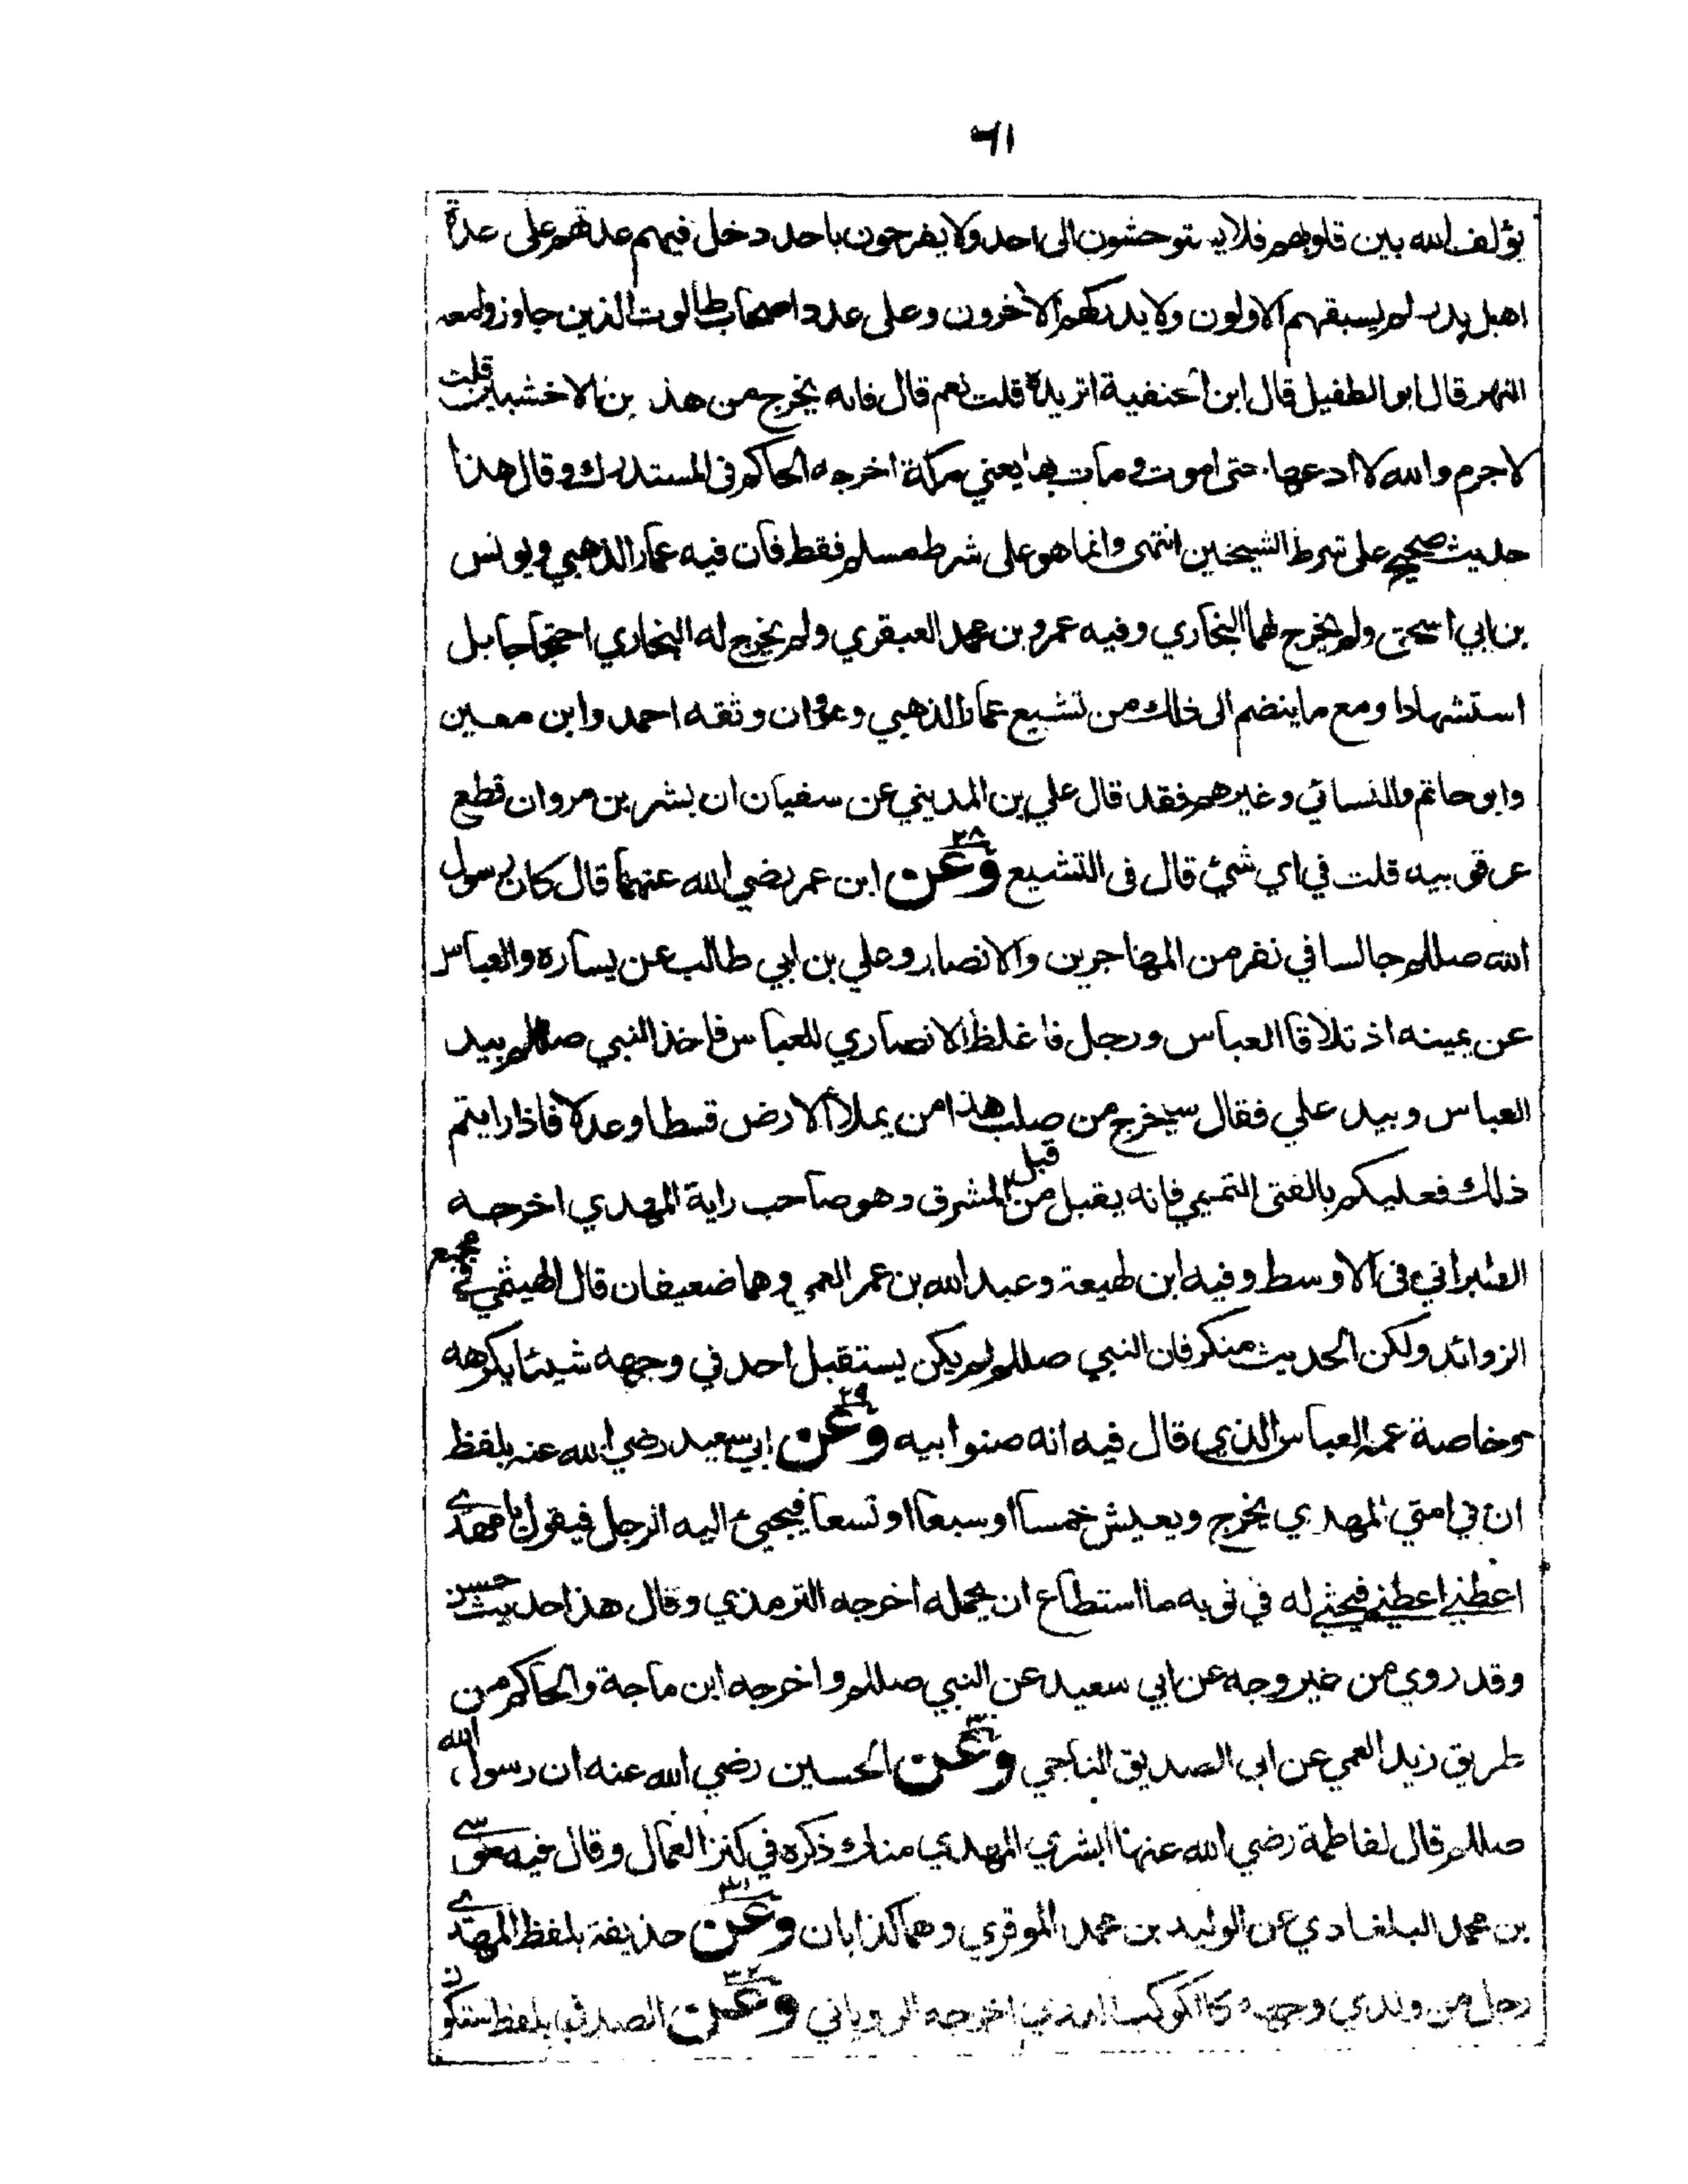 ٦١
يؤلف الله بين قلوبهم فلا يستوحشون الى احد ولا يفرحون باحد دخل فيهم عدتهم على عدة
اهل بدر لم يسبقهم الاولون ولا يدركهم الآخرون وعلى عدد اصحاب طالوت الذين جاوزوا معه
النهر قال ابو الطفيل قال ابن الحنفية اتريده قلت نعم قال فانه يخرج من هذين الاخشبين قلت
لا جرم والله لا ادعها حتى اموت ومات بها يعني مكة اخرجه الحاكم فى المستدرك وقال هذا
حديث صحيح على شرط الشيخين انتهى وانما هو على شرط مسلم فقط فان فيه عمار الذهبي ويونس
بن ابي اسحق ولم يخرج لهما البخاري وفيه عمرو بن محمد العبقري ولم يخرج له البخاري احتجاجا بل
استشهادا ومع ما ينضم الى ذلك من تشيع عمار الذهبي وهو وان وثقه احمد وابن معين
وابو حاتم والنسائي وغيرهم فقد قال علي بن المديني عن سفيان ان بشر بن مروان قطع
عرقوبيه قلت في اي شئ قال فى التشيع وعن ٢٨ ابن عمر رضي الله عنهما قال كان رسول
الله صللم جالسا في نفر من المهاجرين والانصار وعلي بن ابي طالب عن يساره والعباس
عن يمينه اذ تلاقا العباس ورجل فاغلظ الانصاري للعباس فاخذ النبي صللم بيد
العباس وبيد علي فقال سيخرج من صلب هذا من يملأ الارض قسطا وعدلا فاذا رايتم
ذلك فعليكم بالفتى التميمي فانه يقبل من قبل المشرق وهو صاحب راية المهدي اخرجه
الطبراني فى الاوسط وفيه ابن لهيعة وعبد الله بن عمر العمي وهما ضعيفان قال الهيثمي في مجمع
الزوائد ولكن الحديث منكر فان النبي صللم لم يكن يستقبل احد في وجهه شيئا يكرهه
وخاصة عمه العباس الذي قال فيه انه صنو ابيه وعن ٢٩ ابي سعيد رضي الله عنه بلفظ
ان في امتي المهدي يخرج ويعيش خمسا او سبعا او تسعا فيجيئ اليه الرجل فيقول يا مهدي
اعطني اعطني فيحثي له في ثوبه ما استطاع ان يحمله اخرجه الترمذي وقال هذا حديث حسن
وقد روي من غير وجه عن ابي سعيد عن النبي صللم واخرجه ابن ماجة والحاكم من
طريق زيد العمي عن ابي الصديق الناجي وعن ٣٠ الحسين رضي الله عنه ان رسول الله
صللم قال لفاطمة رضي الله عنها ابشري المهدي منك ذكره في كنز العمال وقال فيه موسى
بن محمد البلغادي عن الوليد بن محمد الموقري وهما كذابان وعن ٣١ حذيفة بلفظ المهدي
رجل من ولدي وجهه كالكوكب الدري اخرجه الروياني وعن ٣٢ الصدفي بلفظ ستكون